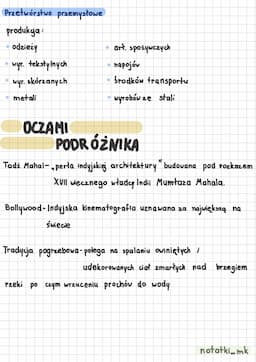 Przetwórstwo przemysłowe
produkcja:
• odzieży
• wyr. tekstylnych
• wyr. skórzanych
• metali
• art. spożywczych
• napojów
• środków transportu
• wyrobów ze stali
OCZAMI
PODRÓŻNIKA
Tadż Mahal-„perła indyjskiej architektury" budowana pod rozkazem
XVII wiecznego władcy Indii Mumtaza Mahala.
Bollywood-Indyjska kinematografia uznawana za największą na
świecie
Tradycja pogrzebowa-polega na spalaniu owiniętych i
udekorowanych ciał zmarłych nad brzegiem
rzeki po czym wrzuceniu prochów do wody
notatki_mk